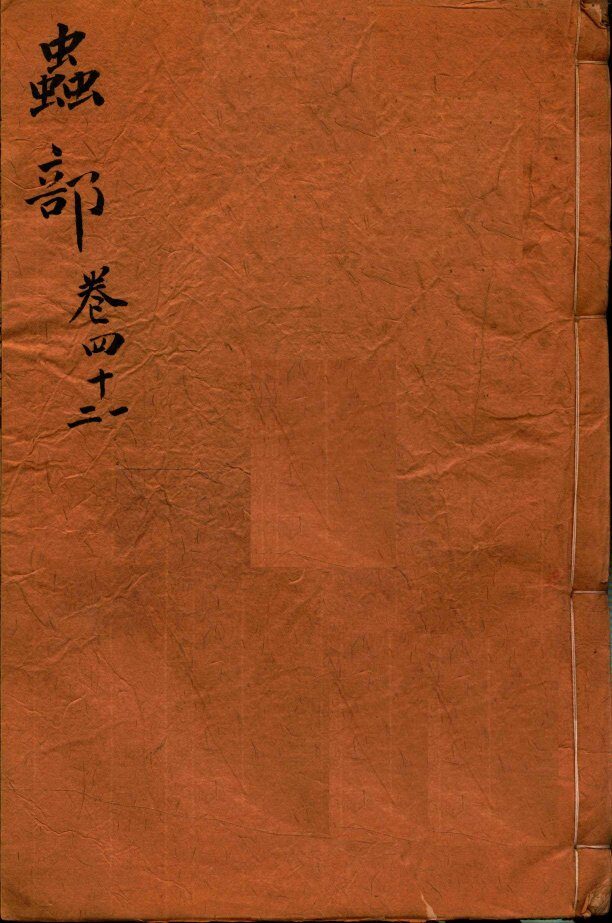 蟲部
卷四十一二